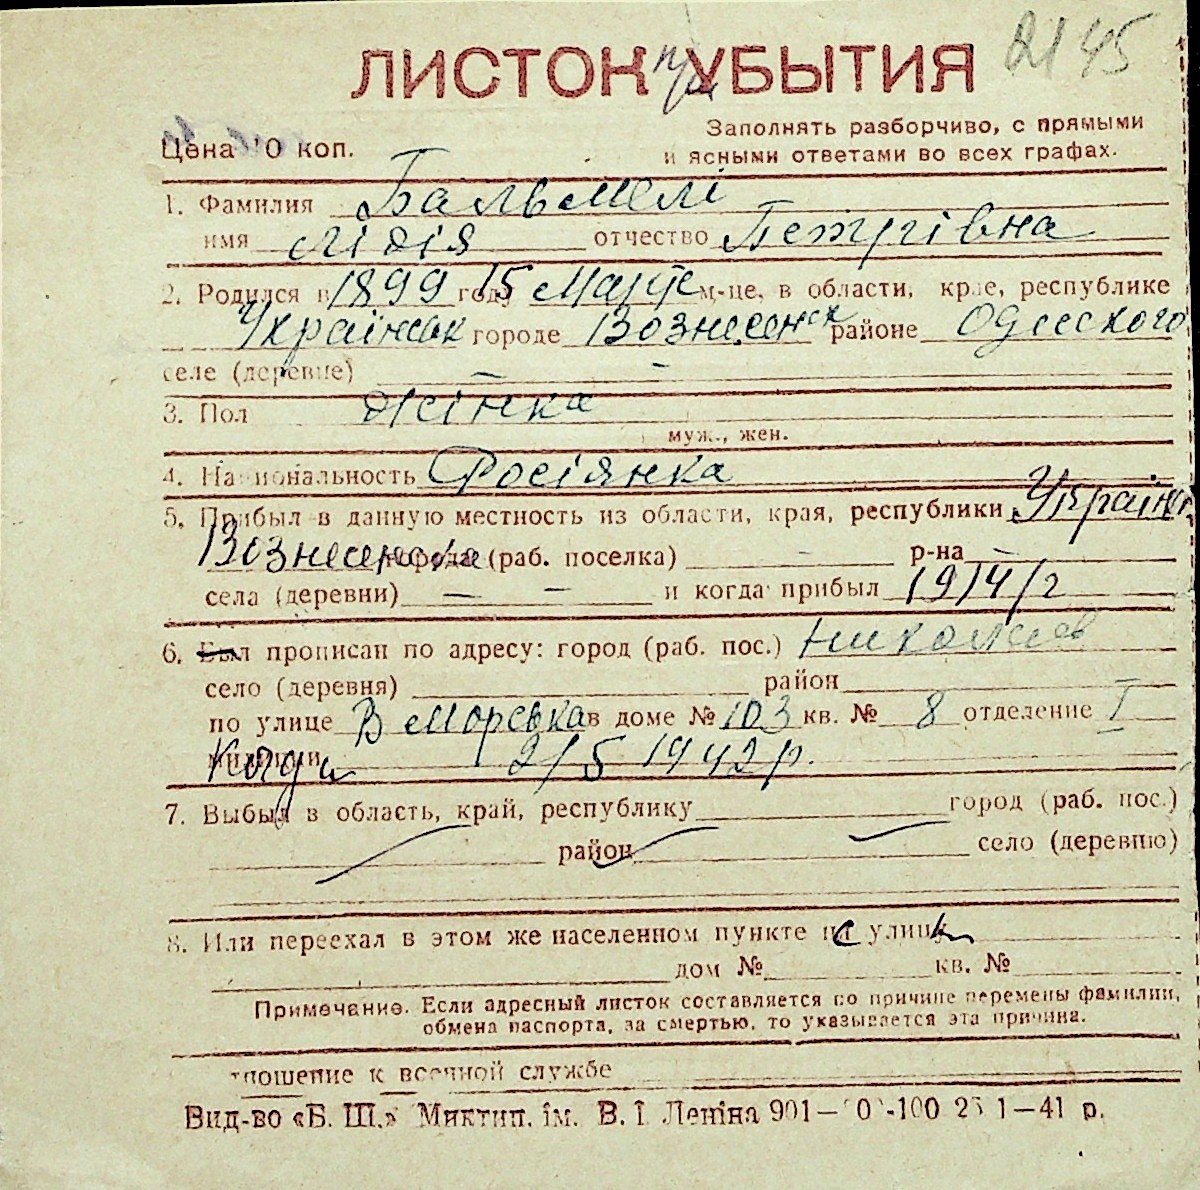 2145
ЛИСТОК при УБЫТИЯ
Заполнять разборчиво, с прямыми
Цена 10 коп. и ясными ответами во всех графах.
1. Фамилия Бальмелі
имя Лідія отчество Петрівна
2. Родился в 1899 году 15 Марта м-це, в области, крае, республике
Українськ городе Вознесенск районе Одесского
селе (деревне) — —
3. Пол жінка
муж., жен.
4. Национальность Росіянка
5. Прибыл в данную местность из области, края, республики Україна
Вознесенска города (раб. поселка) — р-на —
села (деревни) — — и когда прибыл 1914/г
6. Был прописан по адресу: город (раб. пос.) Николаев
село (деревня) район
по улице В Морська в доме № 103 кв. № 8 отделение I
милиции Когда 2/5 1942 р.
7. Выбыл в область, край, республику город (раб. пос.)
район село (деревню)
8. Или переехал в этом же населенном пункте на с улицы
дом № кв. №
Примечание. Если адресный листок составляется по причине перемены фамилии,
обмена паспорта, за смертью, то указывается эта причина.
тношение к военной службе
Вид-во «Б. Ш.» Миктип. ім. В. І. Леніна 901— 1—41 р.